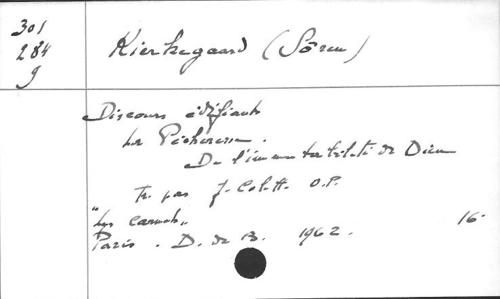 301
284
9
Kierkegaard (Sören)
Discours édifiants
La Pécheresse.
De l'immutabilité de Dieu
Tr. par J. Colette O.P.
"Les Carnets"
Paris. D. de B. 1962. 16°